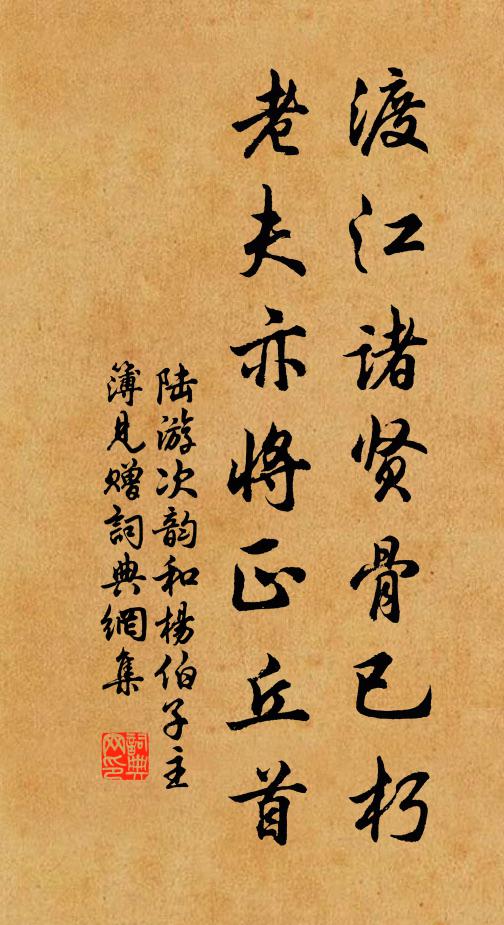 渡江诸贤骨已朽
老夫亦将正丘首
陆游次韵和楊伯子主
簿見赠詞典網集
詞典
网印